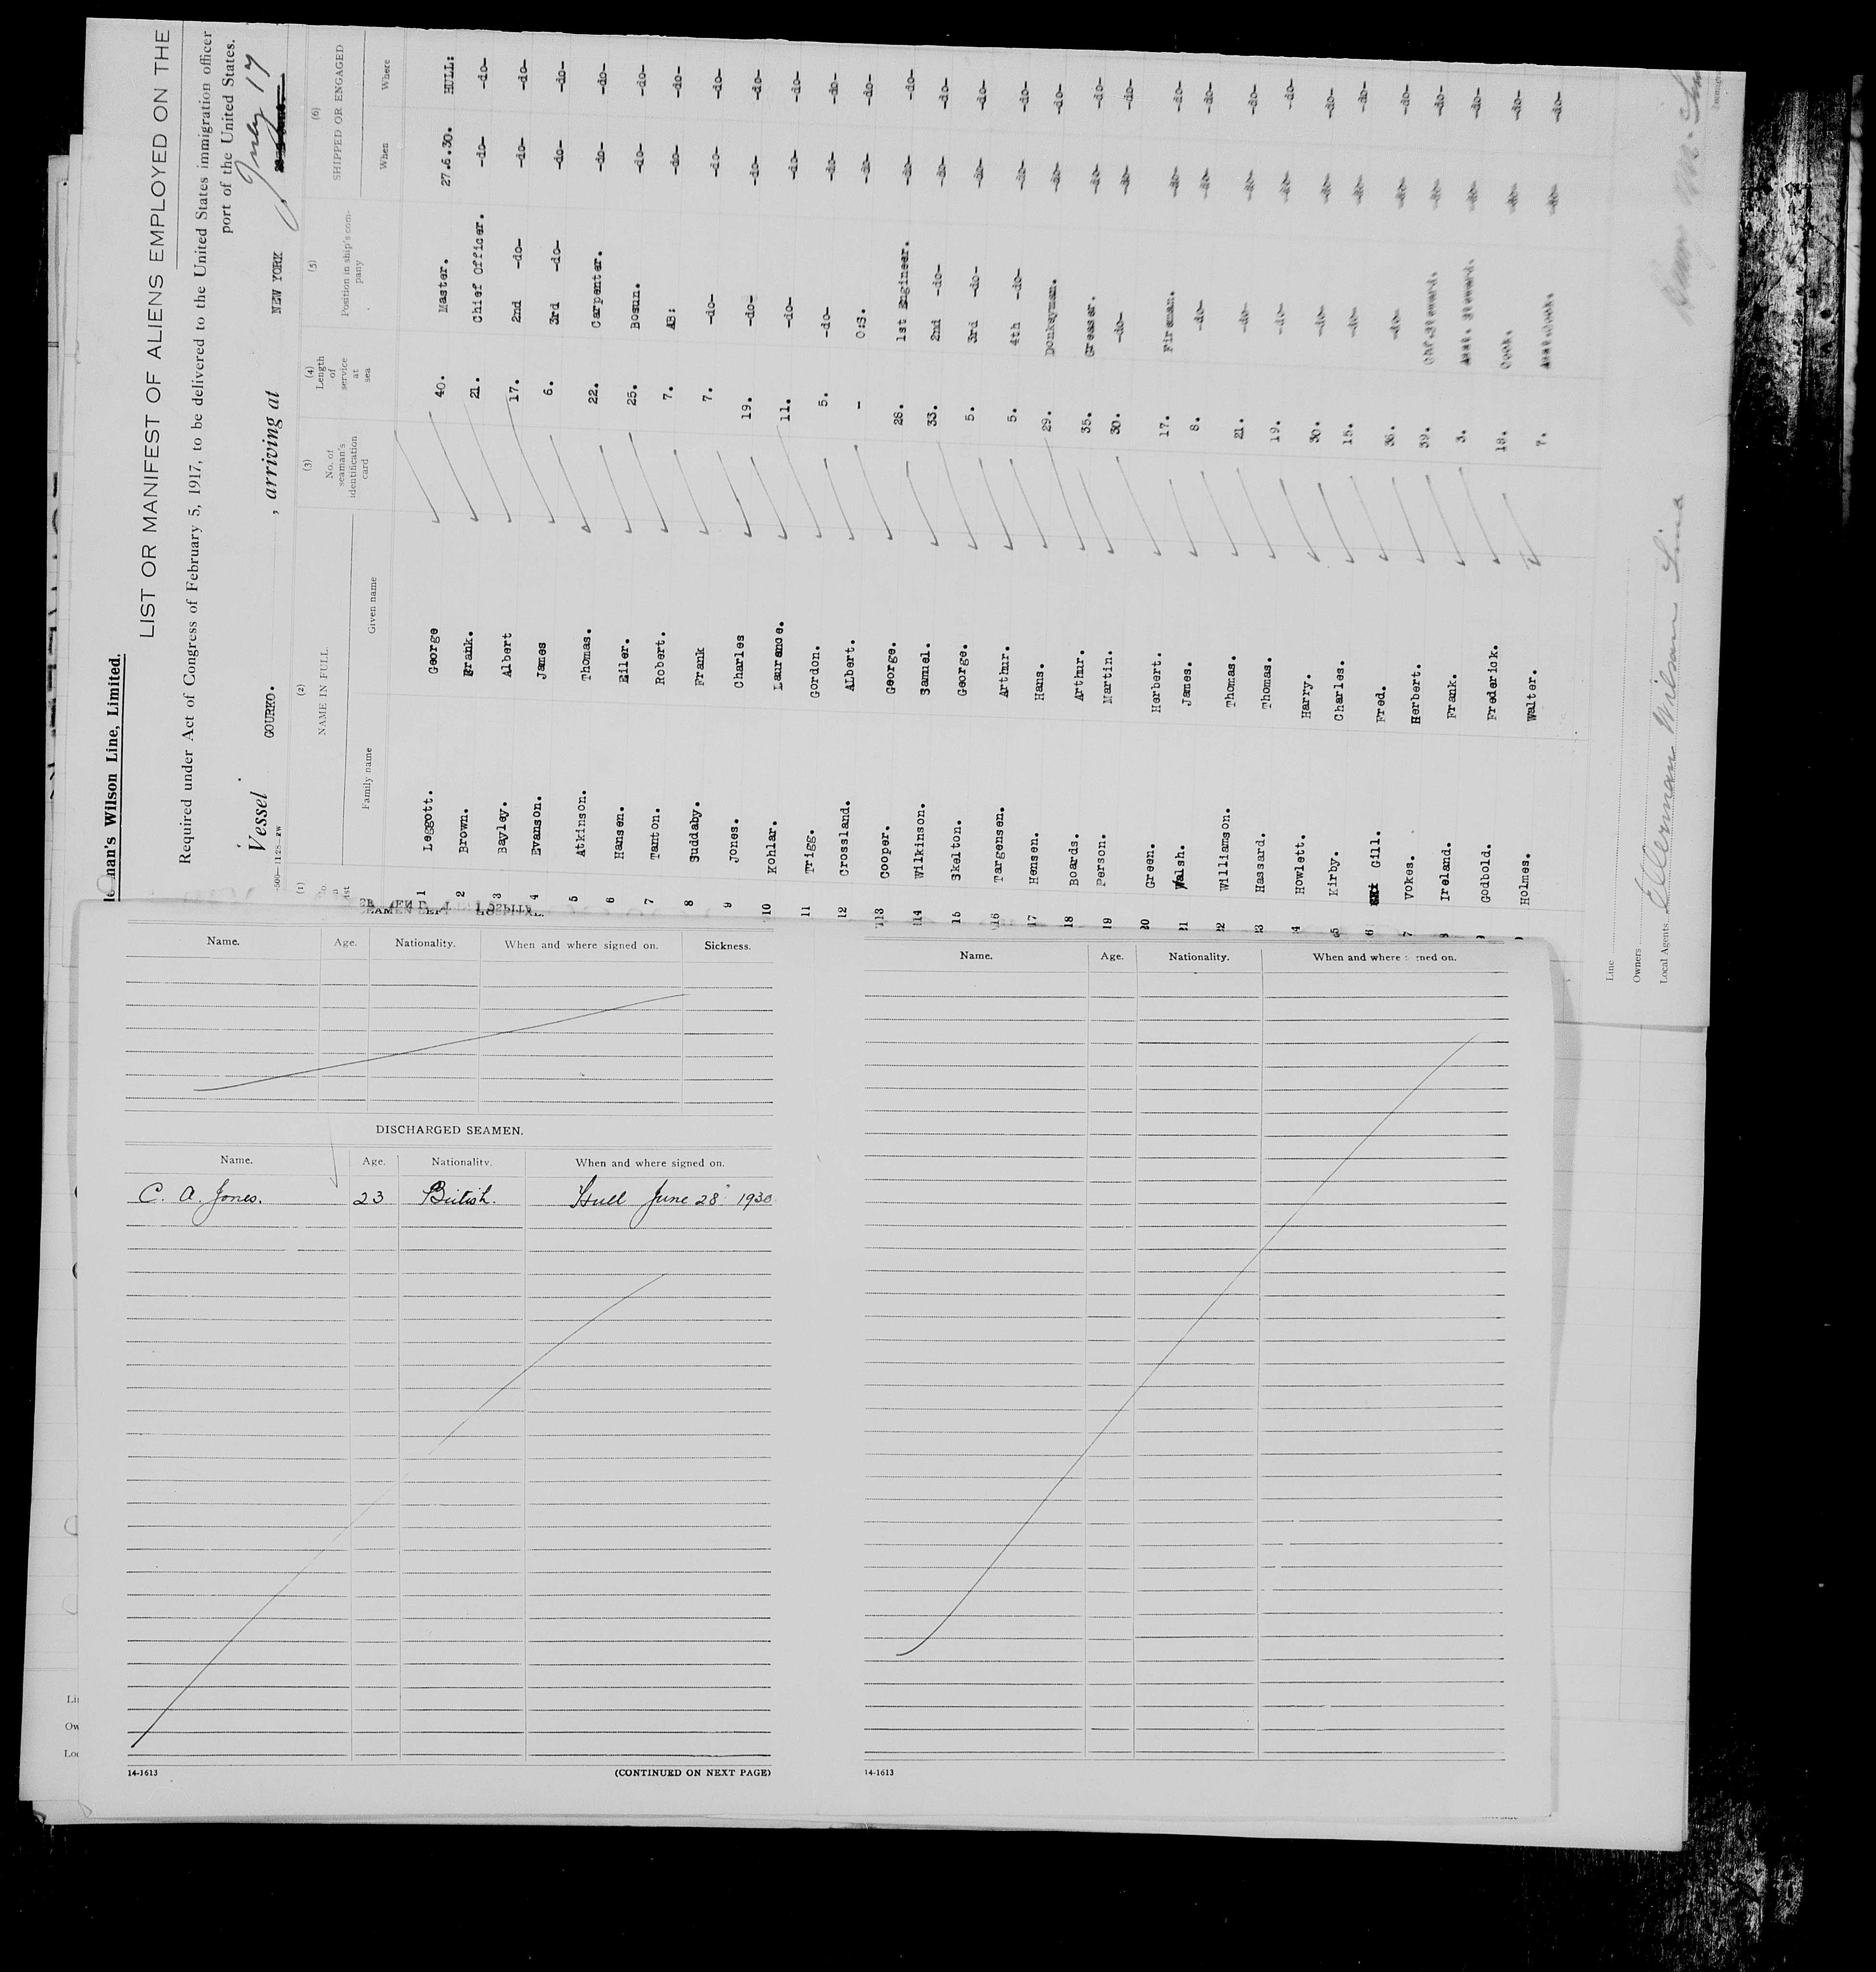 le man's Wilson Line, Limited.
LIST OR MANIFEST OF ALIENS EMPLOYED ON THE
Required under Act of Congress of February 5, 1917, to be delivered to the United States immigration officer
port of the United States.
Vessel GOURKO. , arriving at NEW YORK July 17
(1) (2) (3) (4) (5) (6)
NAME IN FULL No. of seaman's identification card Length of service at sea Position in ship's company SHIPPED OR ENGAGED
Family name Given name When Where
1 Leggott. George 40. Master. 27.6.30. HULL:
2 Brown. Frank. 21. Chief Officer. -do- -do-
3 Bayley. Albert 17. 2nd -do- -do- -do-
4 Evanson. James 6. 3rd -do- -do- -do-
5 Atkinson. Thomas. 22. Carpenter. -do- -do-
6 Hansen. Eiler. 25. Bosun. -do- -do-
7 Tanton. Robert. 7. AB: -do- -do-
8 Suddaby. Frank 7. -do- -do- -do-
9 Jones. Charles 19. -do- -do- -do-
10 Kohlar. Laurance. 11. -do- -do- -do-
11 Trigg. Gordon. 5. -do- -do- -do-
12 Crossland. ALbert. - O:S. -do- -do-
13 Cooper. George. 28. 1st Engineer. -do- -do-
14 Wilkinson. Samuel. 33. 2nd -do- -do- -do-
15 Skelton. George. 5. 3rd -do- -do- -do-
16 Targensen. Arthur. 5. 4th -do- -do- -do-
17 Hensen. Hans. 29. Donkeyman. -do- -do-
18 Boards. Arthur. 35. Greaser. -do- -do-
19 Person. Martin. 30. -do- -do- -do-
20 Green. Herbert. 17. Fireman. -do- -do-
21 Walsh. James. 8. -do- -do- -do-
22 Williamson. Thomas. 21. -do- -do- -do-
23 Hasard. Thomas. 19. -do- -do- -do-
4 Howlett. Harry. 30. -do- -do- -do-
5 Kirby. Charles. 15. -do- -do- -do-
6 Gill. Fred. 36. -do- -do- -do-
7 Vokes. Herbert. 39. Chf.Steward. -do- -do-
8 Ireland. Frank. 3. Asst. Steward. -do- -do-
Godbold. Frederick. 18. Cook. -do- -do-
Holmes. Walter. 7. Asst.Cook. -do- -do-
Line
Owners
Local Agents Ellerman Wilson Line
Name. Age. Nationality. When and where signed on. Sickness.
DISCHARGED SEAMEN.
Name. Age. Nationality. When and where signed on.
C. A. Jones. 23 British. Hull June 28" 1930
14-1613 (CONTINUED ON NEXT PAGE)
Name. Age. Nationality. When and where signed on.
14-1613